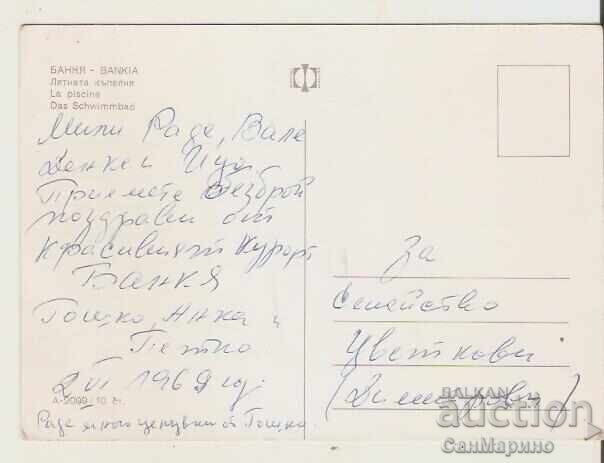 БАНКЯ - BANKIA
Лятната къпалня
La piscine
Das Schwimmbad
Мили Раде, Вале
Денке и Ицо
Приемете безброй
поздрави от
красивият курорт
Банкя
Гошко, Анка и
Петко
2 VI 1969 год.
A-2099/10 ст.
Раде много целувки от Гошко.
За
Семейство
Цветкови
(Димитрови)
BALKAN
auction
СанМарино